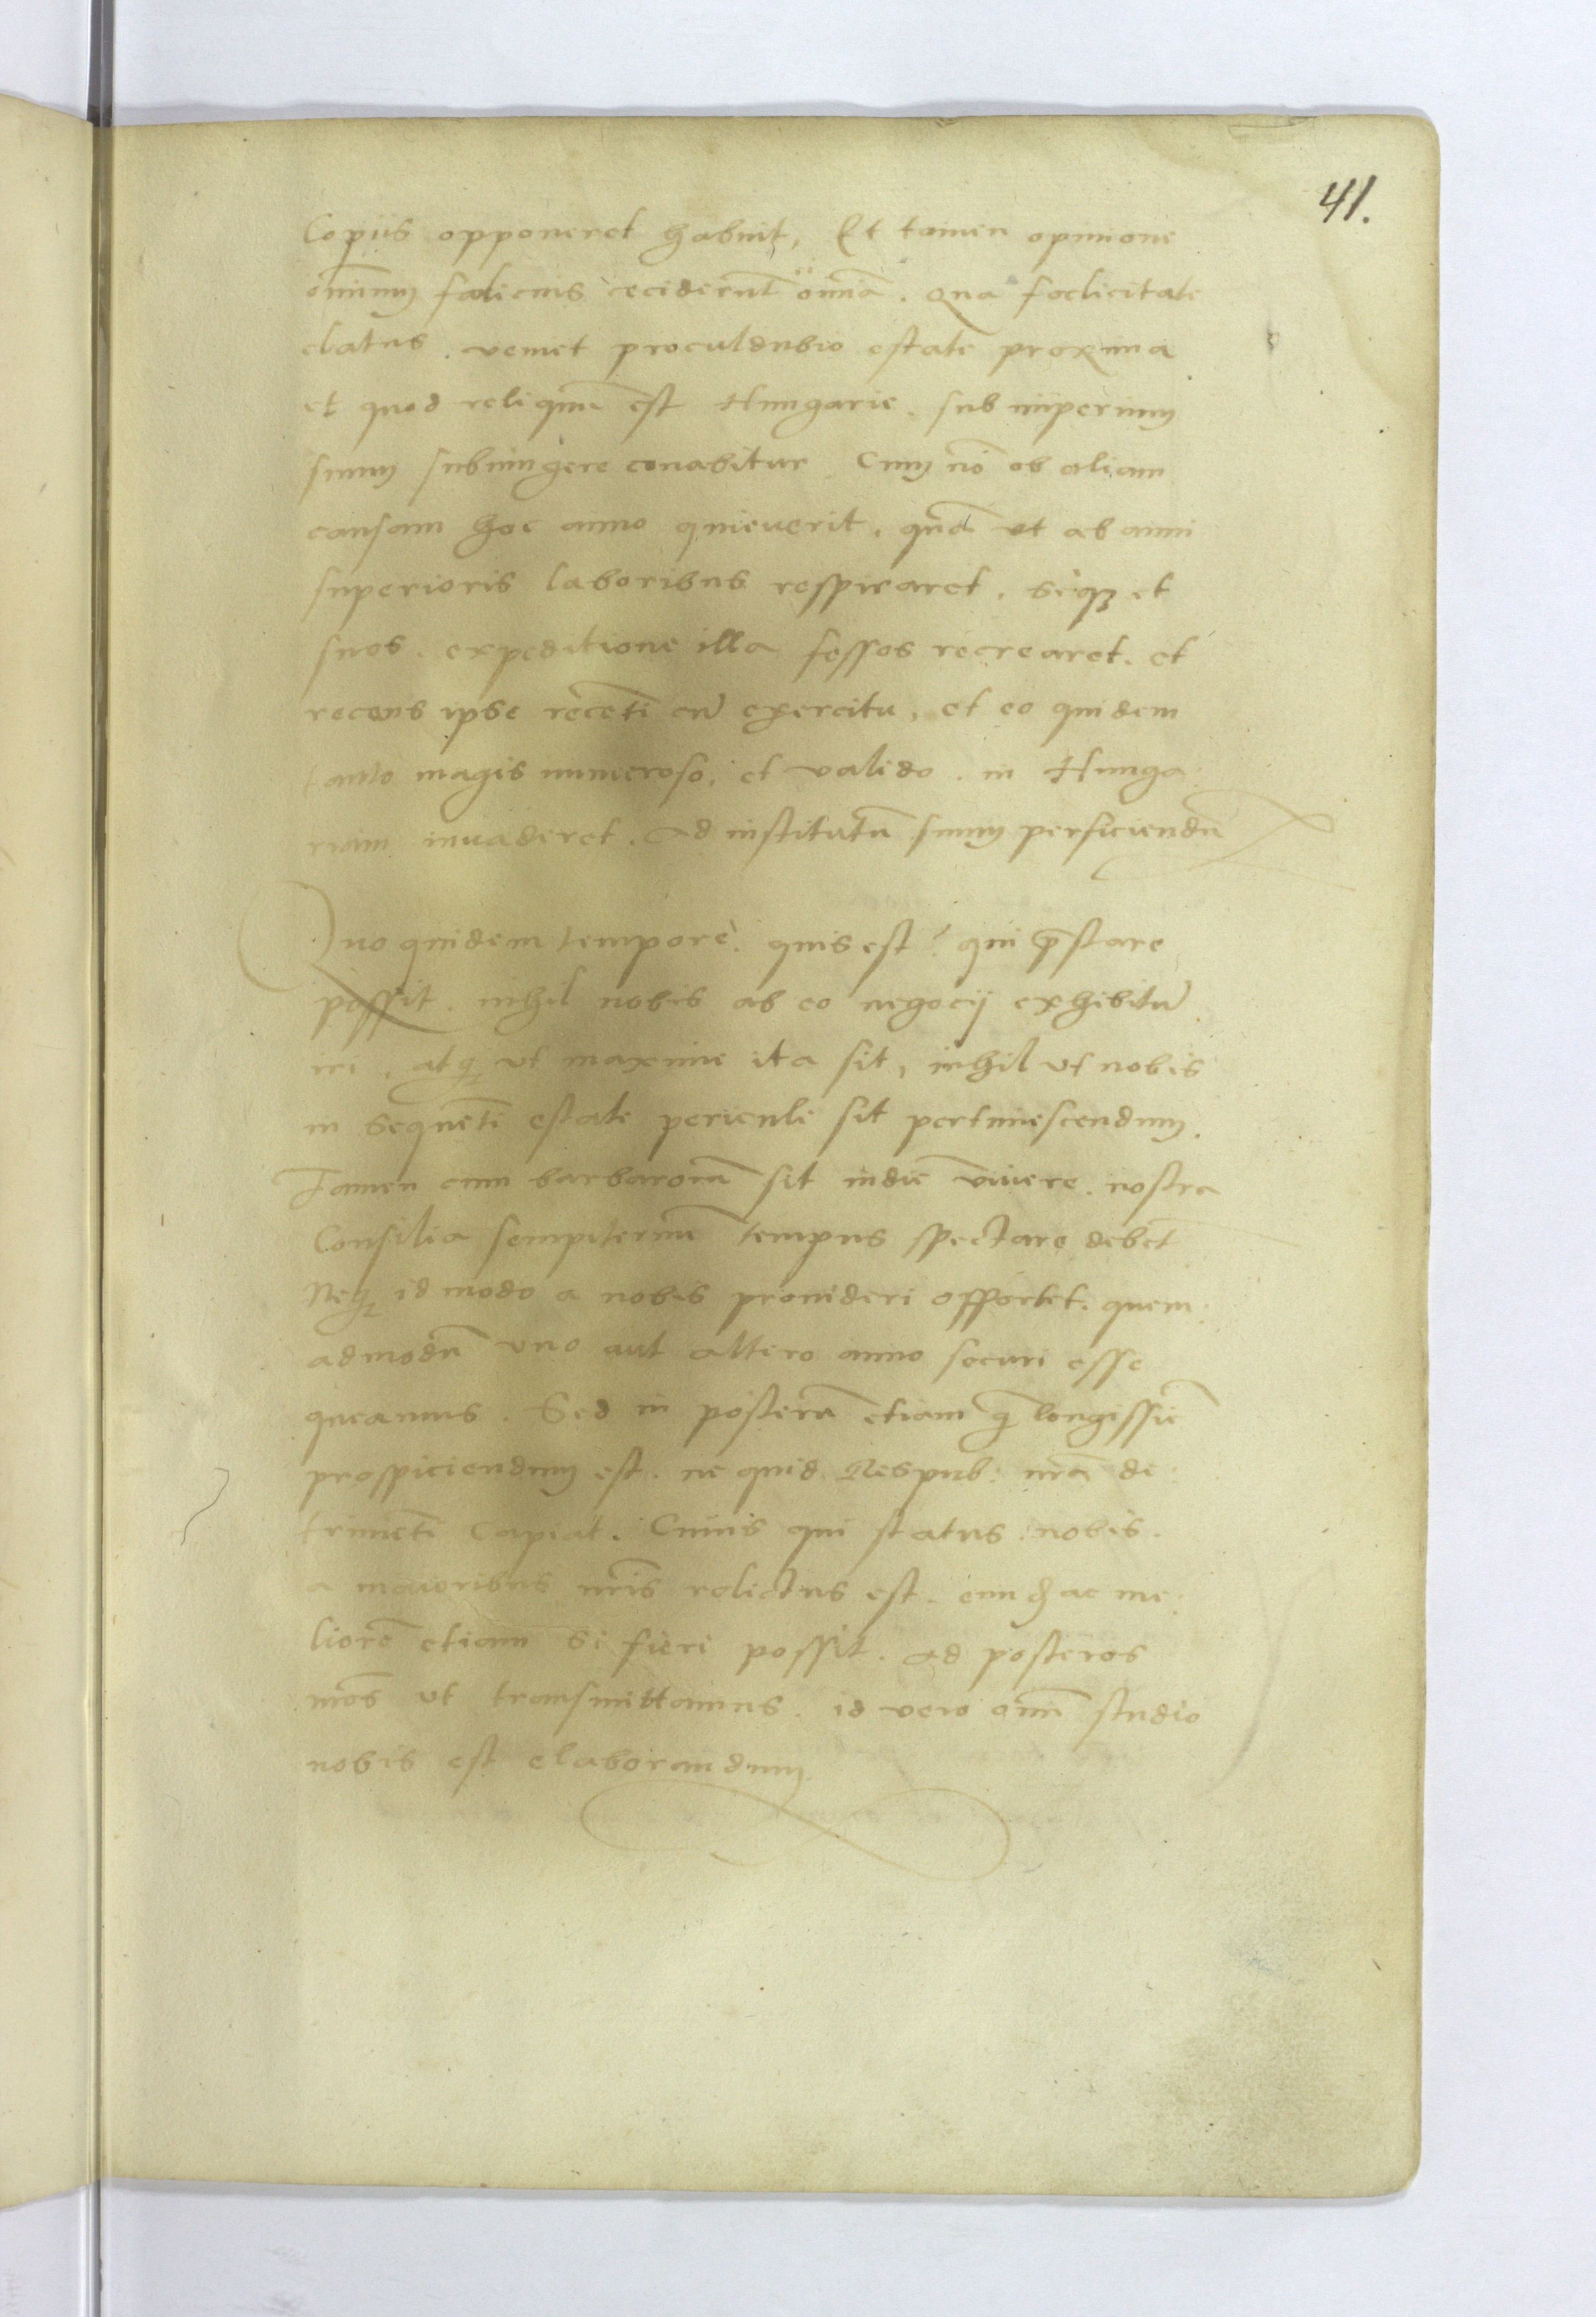 41.
Copiis opponeret habuit, Et tamen opinione
om̄nium fœlicius ceciderunt om̄ia. Qua fœlicitate
elatus. veniet proculdubio estate proxima
et quod reliquū est Hungarie. sub imperium
suum subiungere conabitur. Cum nō ob aliam
causam hoc anno quieuerit, quā ut ab anni
superioris laboribus respiraret. seqȝ et
suos. expeditione illa fessos recrearet. et
recens ipse recēti cū exercitu, et eo quidem
tanto magis numeroso. et valido. in Hunga
riam invaderet. Ad institutū suum perficiendū
Quo quidem tempore. quis est? qui p̄stare
possit. nihil nobis ab eo negocij exhibitū
iri. atqȝ ut maxime ita sit, nihil ut nobis
in sequēti estate periculi sit pertimescendum.
Tamen cum barbarorū sit indiē vivere. nostra
Consilia sempiternū tempus spectare debēt
Neqȝ id modo a nobis provideri opportet. quem
admodū uno aut altero anno securi esse
queamus. Sed in posterū etiam q̄ longissīē
prospiciendum est. ne quid Respub: nrā de:
trimēti Capiat. Cuius qui status nobis.
a maioribus nr̄is relictus est. eundē ac me:
liorē etiam si fieri possit. ad posteros
nr̄os ut transmittamus. id vero omī studio
nobis est elaborandum